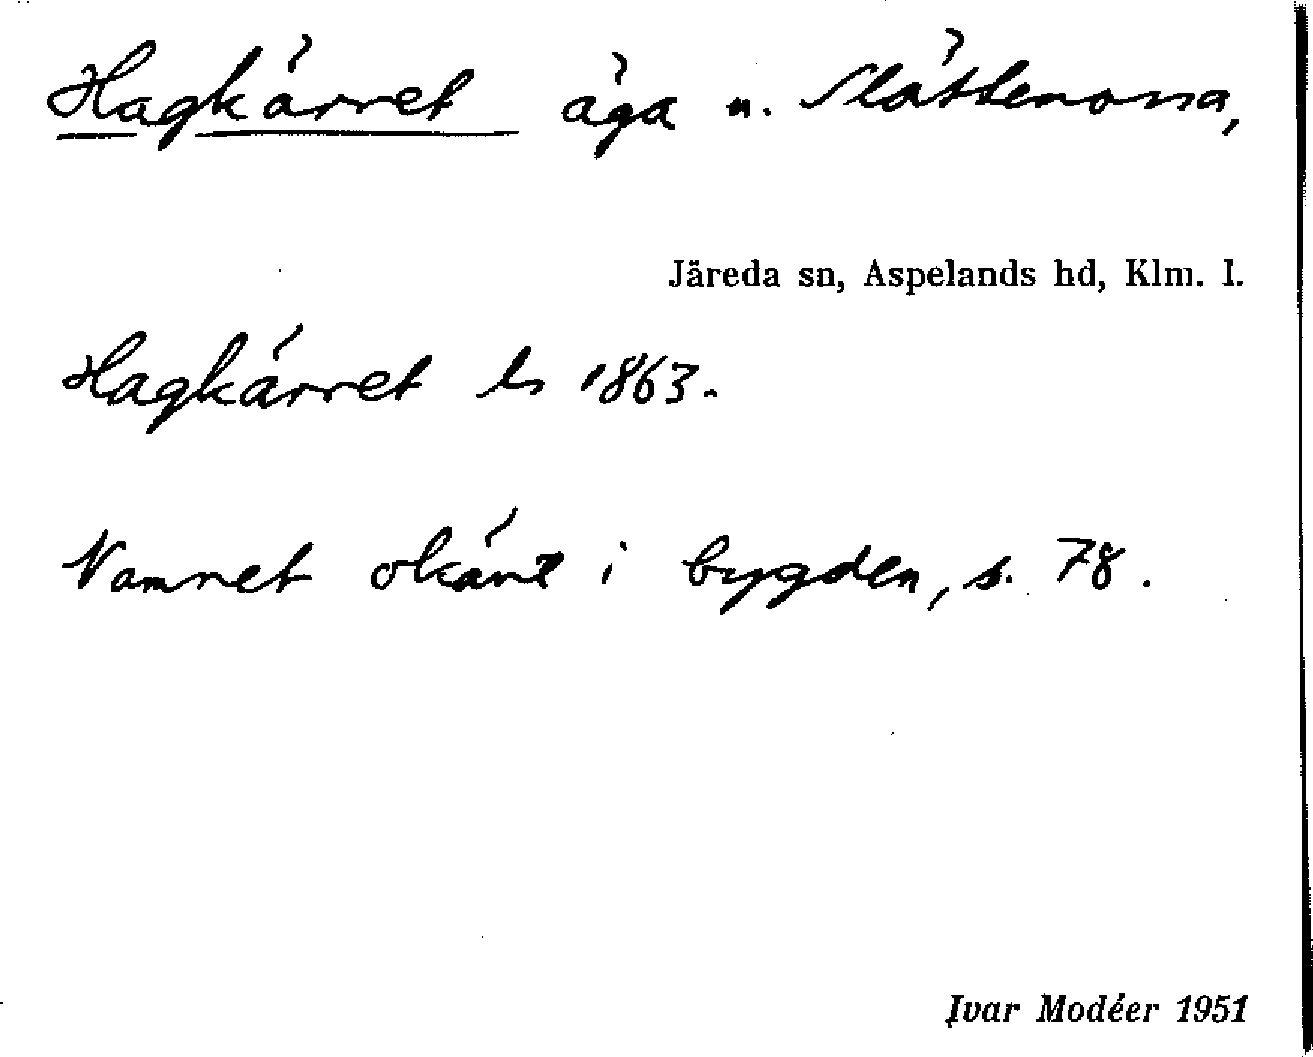 Hagkärret äga u. Slättemossa,
Järeda sn, Aspelands hd, Klm. l.
Hagkärret ls 1863.
Namnet okänt i bygden, s. 78.
Ivar Modéer 1951